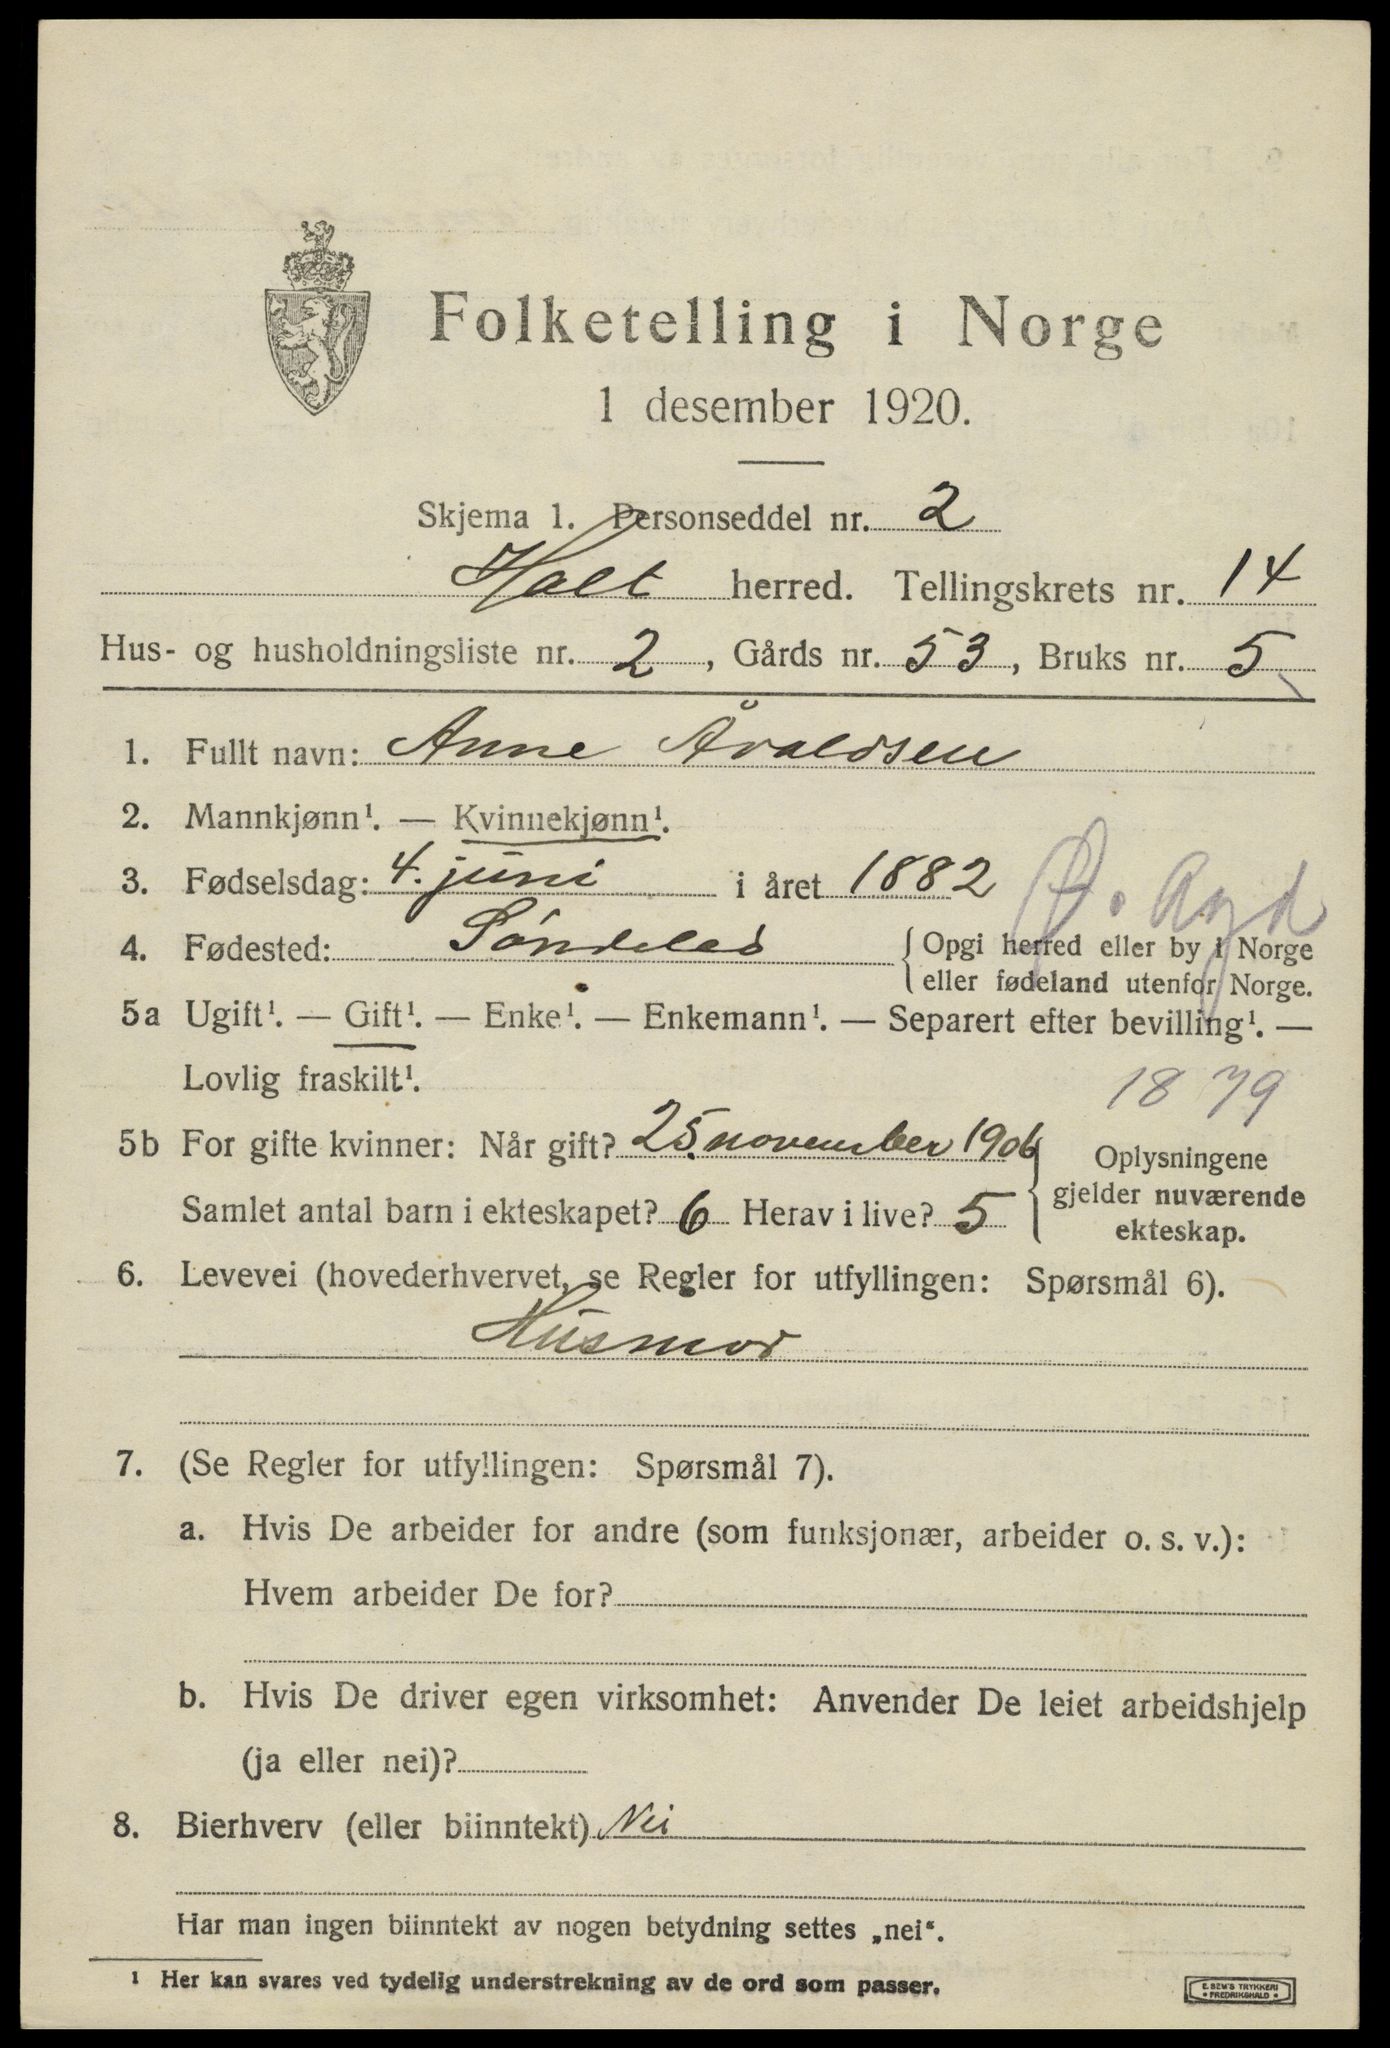 Folketelling i Norge
1 desember 1920.
Skjema 1. Personseddel nr. 2
Holt herred. Tellingskrets nr. 14
Hus- og husholdningsliste nr. 2, Gårds nr. 53, Bruks nr. 5
1. Fullt navn: Anne Åvaldsen
2. Mannkjønn¹. — Kvinnekjønn¹.
3. Fødselsdag: 4. juni i året 1882
Ø. Agd
4. Fødested: Søndeled { Opgi herred eller by i Norge
eller fødeland utenfor Norge.
5a Ugift¹. — Gift¹. — Enke¹. — Enkemann¹. — Separert efter bevilling¹. —
Lovlig fraskilt¹.
1879
5b For gifte kvinner: Når gift? 25. november 1906
Samlet antal barn i ekteskapet? 6 Herav i live? 5
{ Oplysningene
gjelder nuværende
ekteskap.
6. Levevei (hovederhvervet, se Regler for utfyllingen: Spørsmål 6).
Husmor
7. (Se Regler for utfyllingen: Spørsmål 7).
a. Hvis De arbeider for andre (som funksjonær, arbeider o. s. v.):
Hvem arbeider De for?
b. Hvis De driver egen virksomhet: Anvender De leiet arbeidshjelp
(ja eller nei)?
8. Bierhverv (eller biinntekt) Nei
Har man ingen biinntekt av nogen betydning settes „nei“.
¹ Her kan svares ved tydelig understrekning av de ord som passer.
E. SEM'S TRYKKERI
• FREDRIKSHALD •